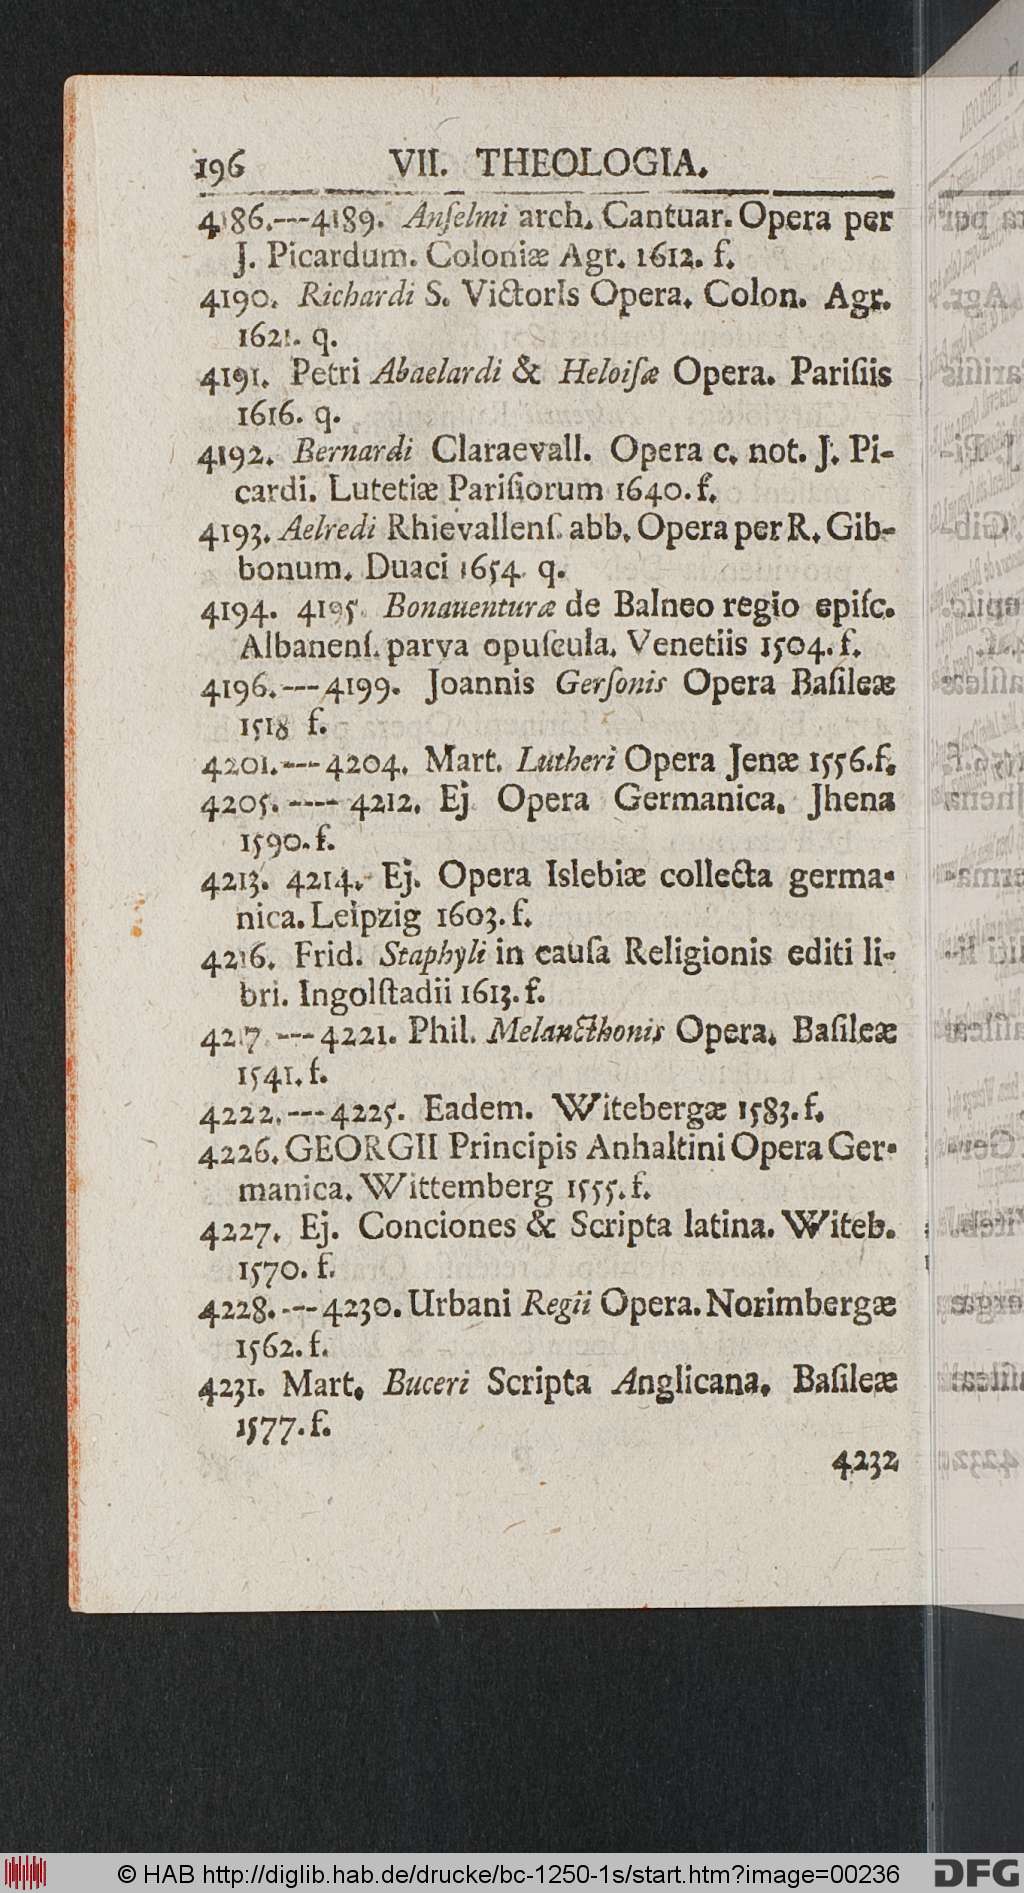 196 VII. THEOLOGIA.
4186.---4189. Anſelmi arch. Cantuar. Opera per
J. Picardum. Coloniæ Agr. 1612. f.
4190. Richardi S. VictorIs Opera. Colon. Agr.
1621. q.
4191. Petri Abaelardi & Heloiſæ Opera. Pariſiis
1616. q.
4192. Bernardi Claraevall. Opera c. not. J. Pi-
cardi. Lutetiæ Pariſiorum 1640. f.
4193. Aelredi Rhievallenſ. abb. Opera per R. Gib-
bonum. Duaci 1654. q.
4194. 4195. Bonauenturæ de Balneo regio epiſc.
Albanenſ. parva opuſcula. Venetiis 1504. f.
4196.---4199. Joannis Gerſonis Opera Baſileæ
1518 f.
4201.---4204. Mart. Lutheri Opera Jenæ 1556. f.
4205.----4212. Ej Opera Germanica. Jhena
1590. f.
4213. 4214. Ej. Opera Islebiæ collecta germa-
nica. Leipzig 1603. f.
4216. Frid. Staphyli in cauſa Religionis editi li-
bri. Ingolſtadii 1613. f.
4217.---4221. Phil. Melancthonis Opera. Baſileæ
1541. f.
4222.---4225. Eadem. Witebergæ 1583. f.
4226. GEORGII Principis Anhaltini Opera Ger-
manica. Wittemberg 1555. f.
4227. Ej. Conciones & Scripta latina. Witeb.
1570. f.
4228.---4230. Urbani Regii Opera. Norimbergæ
1562. f.
4231. Mart. Buceri Scripta Anglicana. Baſileæ
1577. f.
4232
© HAB http://diglib.hab.de/drucke/bc-1250-1s/start.htm?image=00236 DFG